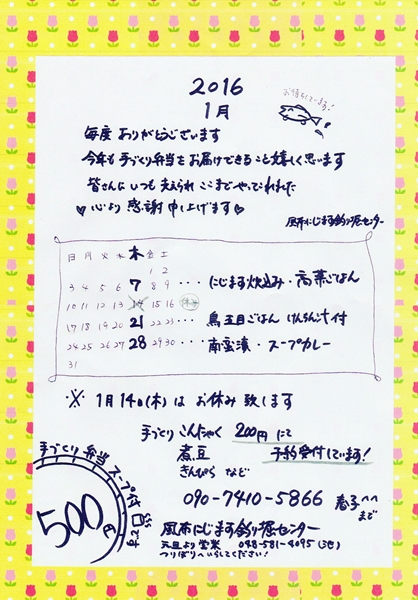 2016
1月
お待ちしています!
毎度 ありがとうございます
今年も 手づくり弁当を お届けできること 嬉しく思います
皆さんに いつも 支えられ ここまで やってこれました
♥心より 感謝 申し上げます♥
風布にじます釣り堀センター
日 月 火 水 木 金 土
1 2
3 4 5 6 7 8 9 ・・・ にじます炊込み・高菜ごはん
10 11 12 13 14 15 16 休み
17 18 19 20 21 22 23 ・・・ 鳥五目ごはん けんちん汁付
24 25 26 27 28 29 30 ・・・ 南蛮漬・スープカレー
31
※ 1月14日(木)は お休み 致します
手づくり こんにゃく 200円 にて
煮豆 予約受付しています!
きんぴら など
手づくり弁当スープ付
500円
です
090-7410-5866 春子へ
まで
風布にじます釣り堀センター
元旦より営業 048-581-4095
つりぼりへいらしてください!